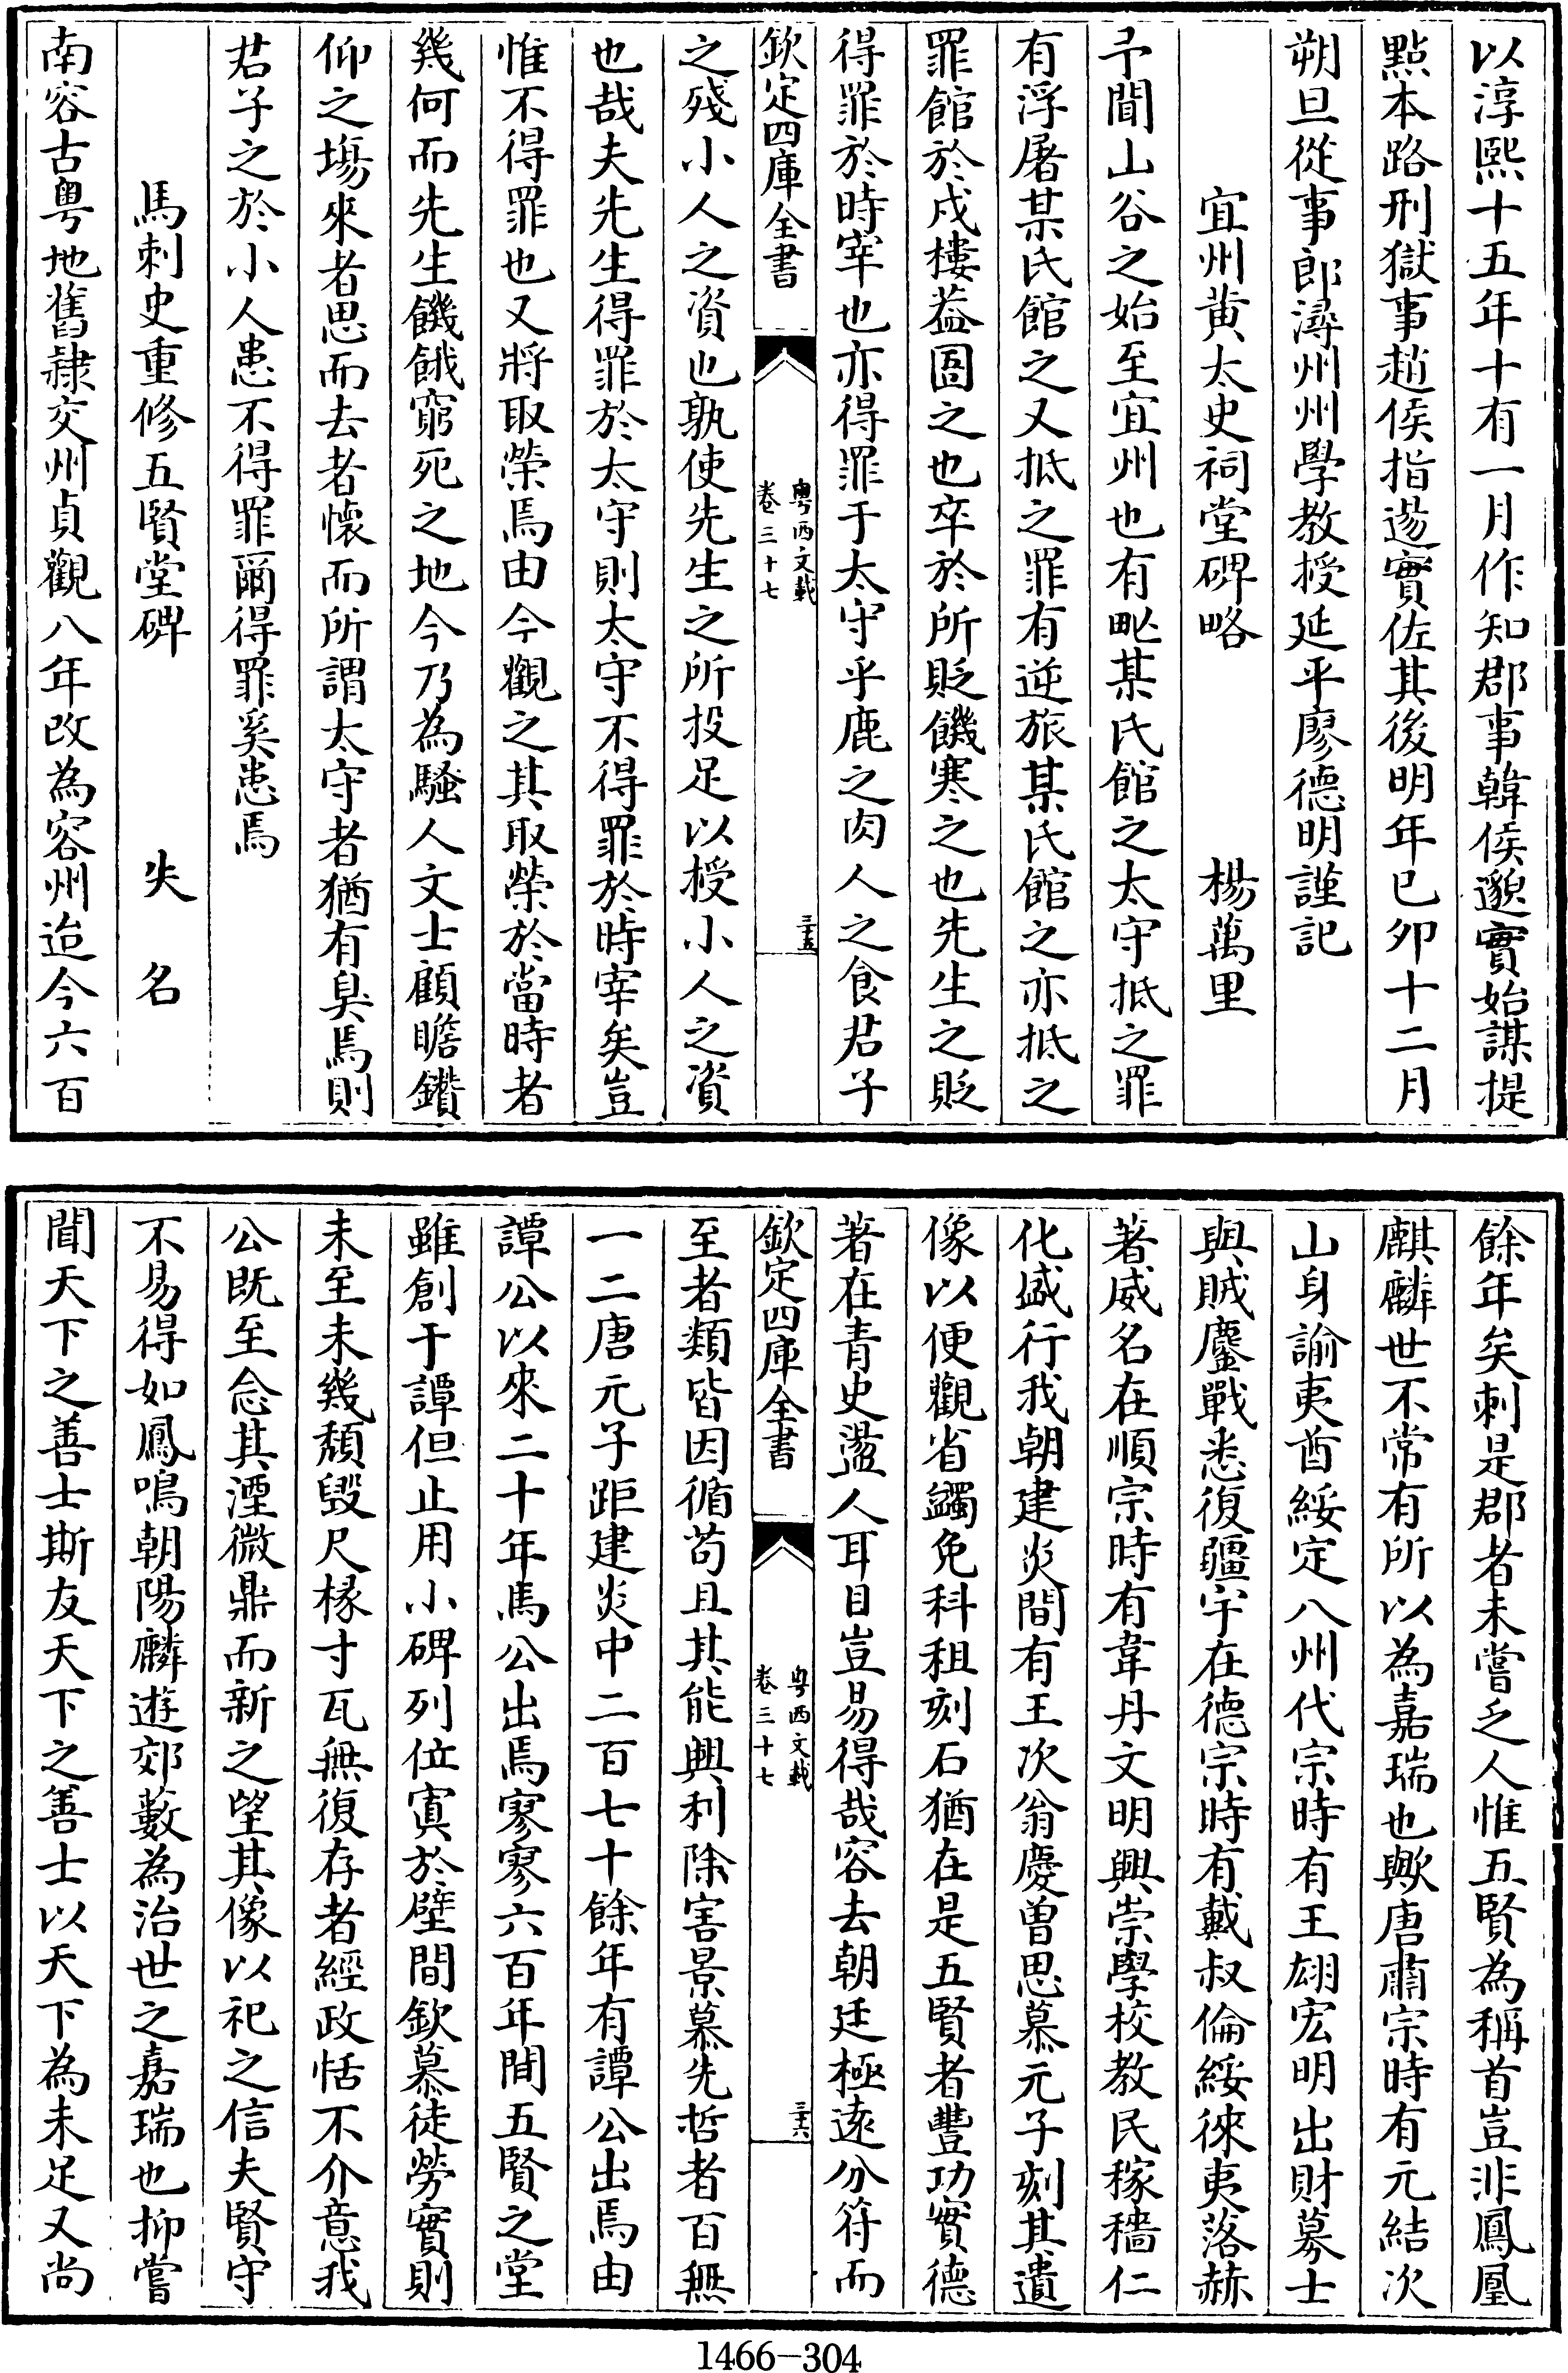 以淳熙十五年十有一月作知郡事韓侯邈實始謀提
點本路刑獄事趙侯指逷實佐其後明年已夘十二月
朔旦從事郎潯州州學教授延平廖德明謹記
宜州黄太史祠堂碑略　楊萬里
予聞山谷之始至宜州也有甿某氏館之太守抵之罪
有浮屠某氏館之又抵之罪有逆旅某氏館之亦抵之
罪館於戍樓葢圄之也卒於所貶饑寒之也先生之貶
得罪於時宰也亦得罪于太守乎鹿之肉人之食君子
欽定四庫全書　粤西文載　卷三十七　三五
之殘小人之資也孰使先生之所投足以授小人之資
也哉夫先生得罪於太守則太守不得罪於時宰矣豈
惟不得罪也又將取榮焉由今觀之其取榮於當時者
幾何而先生饑餓窮死之地今乃為騷人文士顧瞻鑽
仰之塲來者思而去者懐而所謂太守者猶有臭焉則
君子之於小人患不得罪爾得罪奚患焉
馬刺史重修五賢堂碑　失名
南容古粤地舊隷交州貞觀八年改為容州迨今六百
餘年矣刺是郡者未嘗乏人惟五賢為稱首豈非鳳凰
麒麟世不常有所以為嘉瑞也歟唐肅宗時有元結次
山身諭夷酋綏定八州代宗時有王翃宏明出財募士
與賊鏖戰悉復疆宇在德宗時有戴叔倫綏徠夷落赫
著威名在順宗時有韋丹文明興崇學校教民稼穡仁
化盛行我朝建炎間有王次翁慶曾思慕元子刻其遺
像以便觀省蠲免科租刻石猶在是五賢者豐功實德
著在青史盪人耳目豈易得哉容去朝廷極逺分符而
欽定四庫全書　粤西文載　卷三十七　三六
至者類皆因循苟且其能興利除害景慕先哲者百無
一二唐元子距建炎中二百七十餘年有譚公出焉由
譚公以來二十年馬公出焉寥寥六百年間五賢之堂
雖創于譚但止用小碑列位寘於壁間欽慕徒勞實則
未至未幾頽毀尺椽寸瓦無復存者經政恬不介意我
公既至念其湮微鼎而新之塑其像以祀之信夫賢守
不易得如鳳鳴朝陽麟遊郊藪為治世之嘉瑞也抑嘗
聞天下之善士斯友天下之善士以天下為未足又尚
1466-304